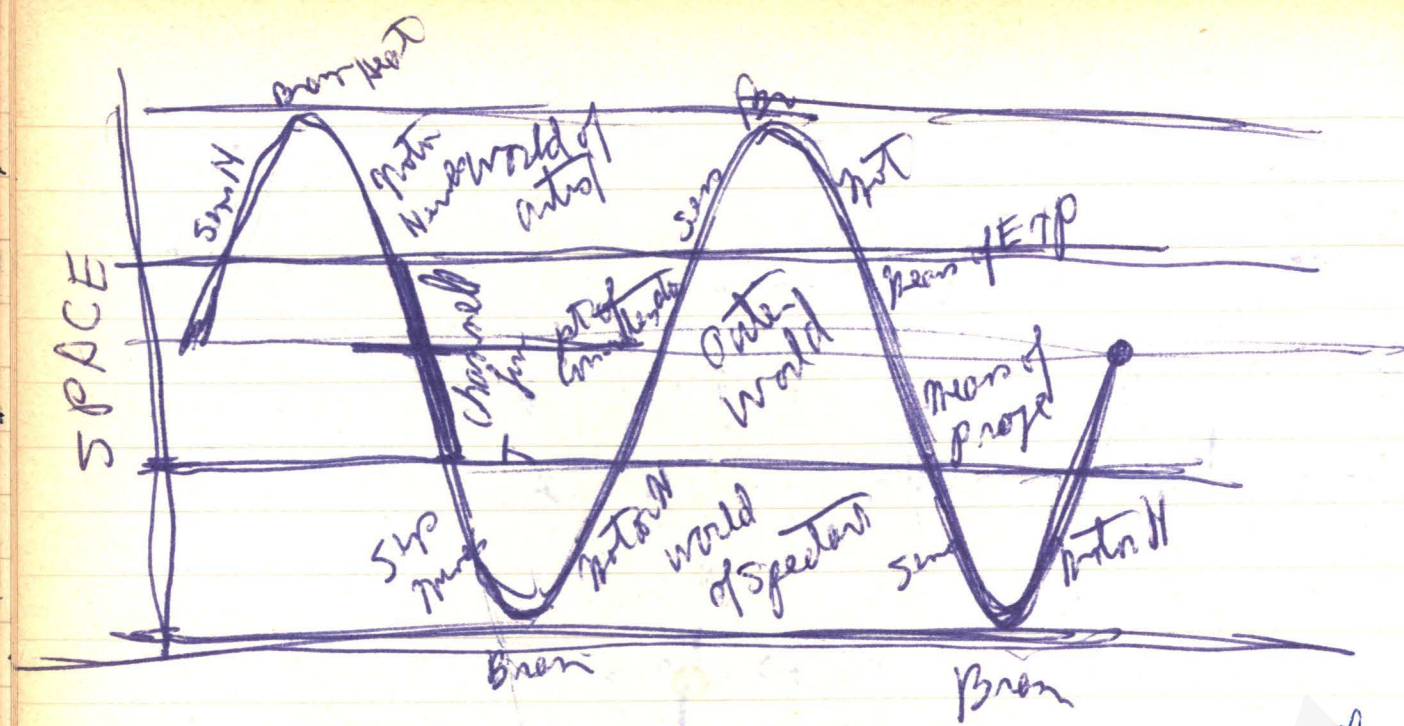 SPACE
Brain
Sens N
Motor
Nerves
World of
artist
Br
Sens
Mot
Means of E T P
Channell
for
pt of
Outer
World
Means of
T
Nerves
Motor N
World
of Spectator
Sens
Motor N
Brain
Brain